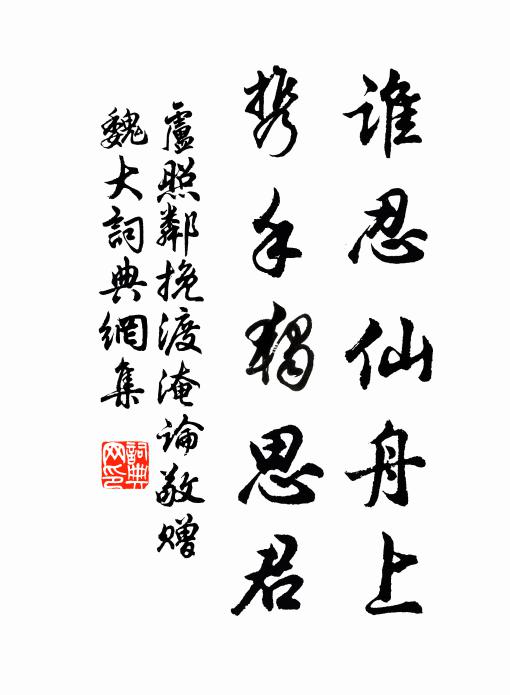 誰忍仙舟上
携手獨思君
盧照鄰挽渡淹論敬贈
魏大詞典網集
詞典网印